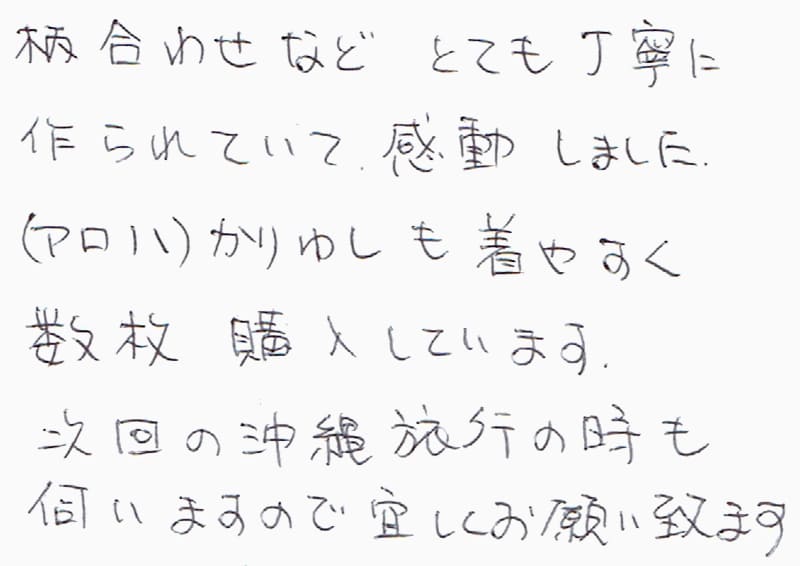 柄合わせなど とても丁寧に
作られていて、感動しました。
(アロハ)かりゆしも着やすく
数枚 購入しています。
次回の沖縄旅行の時も
伺いますので宜しくお願い致ます